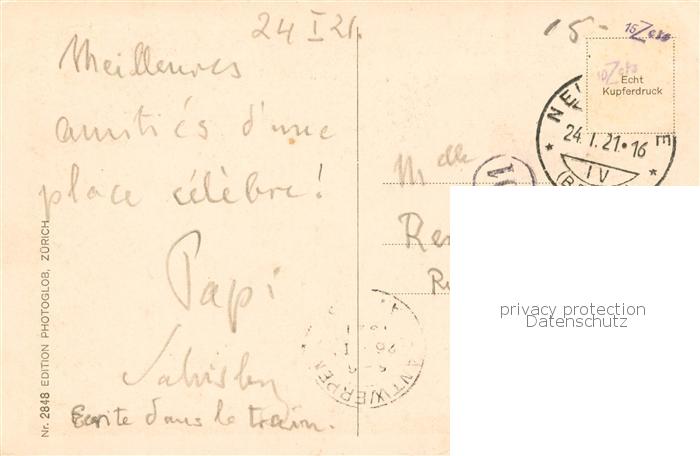 24 I 21.
Meilleures
amitiés d'une
place célèbre!
Papi
Ecrite dans le train.
Nr. 2848 EDITION PHOTOGLOB, ZÜRICH
15-
Echt
Kupferdruck
24.I.21·16
IV
Melle
ANTWERPEN
privacy protection
Datenschutz